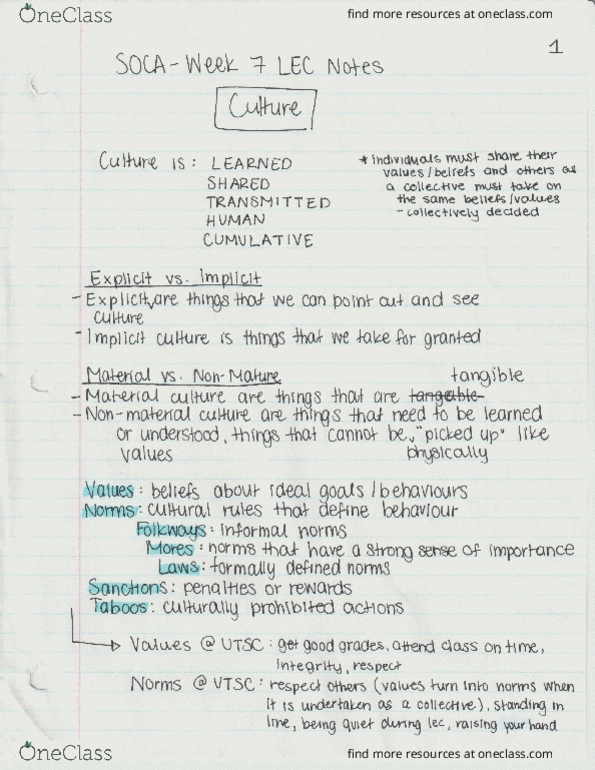 OneClass
find more resources at oneclass.com
1
SOCA - Week 7 LEC Notes
Culture
Culture is: LEARNED
SHARED
TRANSMITTED
HUMAN
CUMULATIVE
* individuals must share their
values/beliefs and others as
a collective must take on
the same beliefs/values
- collectively decided
Explicit vs. Implicit
- Explicit are things that we can point out and see
culture
- Implicit culture is things that we take for granted
Material vs. Non-Mature
tangible
- Material culture are things that are tangeable
- Non-material culture are things that need to be learned
or understood, things that cannot be "picked up" like
values
physically
Values: beliefs about ideal goals/behaviours
Norms: cultural rules that define behaviour
Folkways: informal norms
Mores: norms that have a strong sense of importance
Laws: formally defined norms
Sanctions: penalties or rewards
Taboos: culturally prohibited actions
Values @ UTSC: get good grades, attend class on time,
integrity, respect
Norms @ UTSC: respect others (values turn into norms when
it is undertaken as a collective), standing in
line, being quiet during lec, raising your hand
OneClass
find more resources at oneclass.com